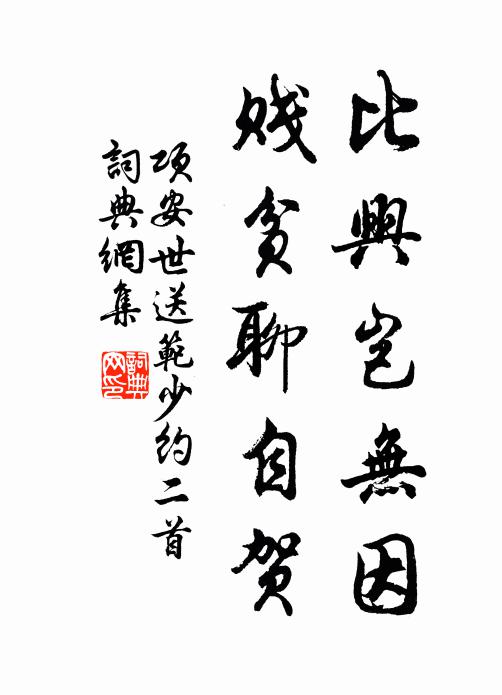 比興豈無因
賤貧聊自賀
項安世送範少約二首
詞典網集
詞典
网印